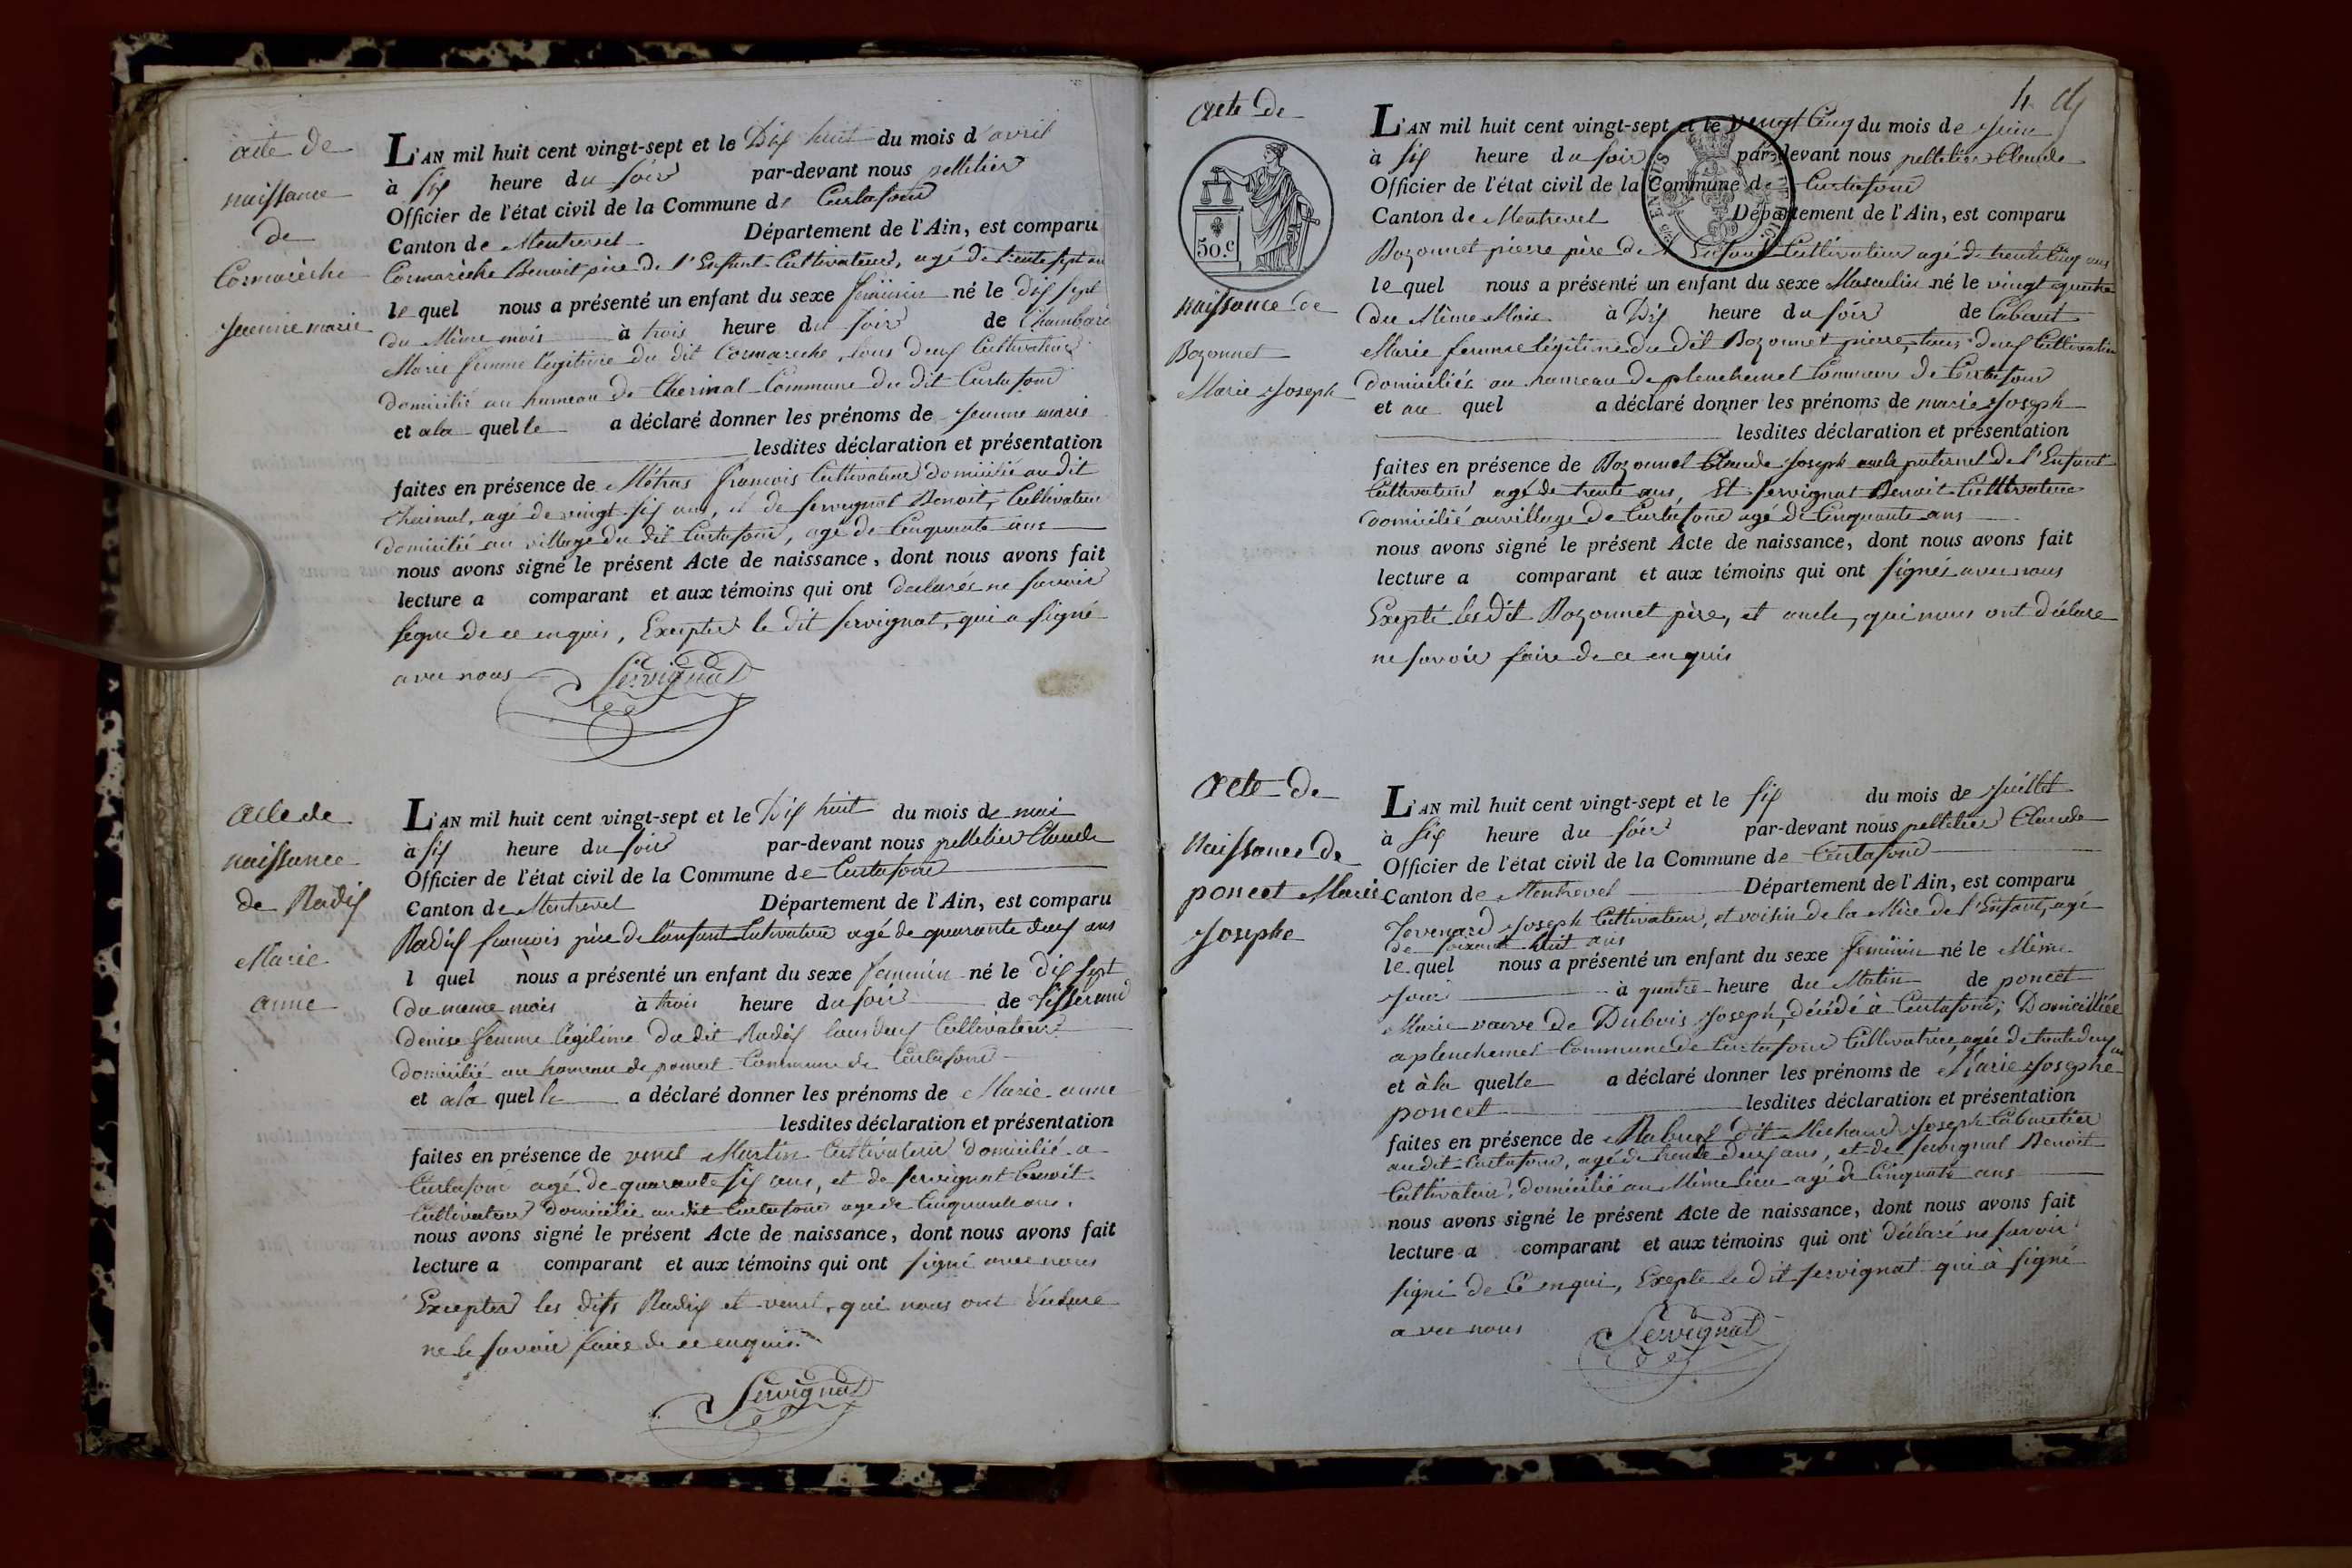 acte de
naissance
de
Cormarèche
Jeanne marie
L'AN mil huit cent vingt-sept et le Dix huit du mois d'avril
à six heure du soir par-devant nous pelletier
Officier de l'état civil de la Commune de Curtafond
Canton de Montrevel Département de l'Ain, est comparu
Cormarèche Benoit père de l'Enfant Cultivateur, agé de trente sept an
le quel nous a présenté un enfant du sexe feminin né le dix sept
du Même mois à trois heure du soir de Chambard
Marie femme légitime du dit Cormareche, tous deux Cultivateur
domicilié au hameau de Cherinal Commune du dit Curtafond
et a la quelle a déclaré donner les prénoms de Jeanne marie
lesdites déclaration et présentation
faites en présence de Métras François Cultivateur domicilié au dit
Cherinal, agé de vingt six ans, et de servignat Benoit, Cultivateur
domicilié au village du dit Curtafond, agé de Cinquante ans
nous avons signé le présent Acte de naissance, dont nous avons fait
lecture a comparant et aux témoins qui ont declarée ne savoir
signe de ce enquis, Excepter le dit servignat, qui a signé
avec nous Servignat
acte de
naissance
de Radix
Marie
anne
L'AN mil huit cent vingt-sept et le Dix huit du mois de mai
à six heure du soir par-devant nous pelletier Claude
Officier de l'état civil de la Commune de Curtafond
Canton de Montrevel Département de l'Ain, est comparu
Radix francois père de l'enfant Cutivateur agé de quarante deux ans
l quel nous a présenté un enfant du sexe feminin né le dix sept
du meme mois à trois heure du soir de Tisserand
denise femme légitime du dit Radix tous deux Cultivateur
domicilié au hameau de poncet Commune de Curtafond
et a la quelle a déclaré donner les prénoms de Marie anne
lesdites déclaration et présentation
faites en présence de venet Martin Cultivateur domicilié a
Curtafond agé de quarante six ans, et de servignat benoit
Cultivateur domicilié au dit Curtafond age de Cinquante ans.
nous avons signé le présent Acte de naissance, dont nous avons fait
lecture a comparant et aux témoins qui ont signé avec nous
Excepter les dits Radix et venet, qui nous ont déclare
ne le savoir faire de ce enquis.
Servignat
4
acte de
50.c
naissance de
Bozonnet
Marie Joseph
L'AN mil huit cent vingt-sept et le vingt Cinq du mois de Juin
à six heure du soir par-devant nous pelletier Claude
Officier de l'état civil de la Commune de Curtafond
Canton de Montrevel Département de l'Ain, est comparu
Bozonnet pierre père de l'Enfant Cultivateur agé de trente Cinq ans
le quel nous a présenté un enfant du sexe Masculin né le vingt quatre
du Même Mois à Dix heure du soir de Cabaut
Marie femme légitime du dit Bozonnet pierre, tous deux Cultivateur
domiciliés au hameau de planchemel Commune de Curtafond
et au quel a déclaré donner les prénoms de marie Joseph
lesdites déclaration et présentation
faites en présence de Bozonnet Claude Joseph oncle paternel de l'Enfant
Cultivateur agé de trente ans, Et servignat Benoit Cultivateur
domicilié au village de Curtafond agé de Cinquante ans
nous avons signé le présent Acte de naissance, dont nous avons fait
lecture a comparant et aux témoins qui ont signés avec nous
Exepté les dit Bozonnet père, et oncle, qui nous ont déclare
ne savoir faire de ce enquis
acte de
Naissance de
poncet Marie
Josephe
L'AN mil huit cent vingt-sept et le six du mois de Juillet
à six heure du soir par-devant nous pelletier Claude
Officier de l'état civil de la Commune de Curtafond
Canton de Montrevel Département de l'Ain, est comparu
Joseph Cultivateur, et voisin de la Mère de l'Enfant, agé
de soixante huit ans
le quel nous a présenté un enfant du sexe feminin né le Même
Jour à quatre heure du Matin de poncet
Marie vauve de Dubois Joseph, décédé à Curtafond; Domiciliée
a planchemel Commune de Curtafond Cultivatrice, agée de trente deux an
et à la quelle a déclaré donner les prénoms de Marie Josephe
poncet lesdites déclaration et présentation
faites en présence de Rabuel dit Michaud Joseph Cabaretier
au dit Curtafond, agé de trente deux ans, et de servignat Benoit
Cultivateur, domicilié au Même lieu agé de Cinquante ans
nous avons signé le présent Acte de naissance, dont nous avons fait
lecture a comparant et aux témoins qui ont déclaré ne savoir
signé de Ce enqui, Exepte le dit servignat qui à signé
avec nous Servignat